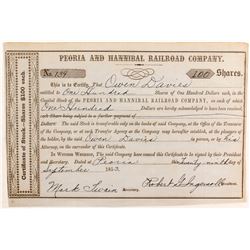 PEORIA AND HANNIBAL RAILROAD COMPANY.
No. 139
100 Shares.
Certificate of Stock---Shares $100 each.
This is to Certify, That Owen Davies
is entitled to One Hundred Shares of One Hundred Dollars each, in the
Capital Stock of the PEORIA AND HANNIBAL RAILROAD COMPANY, on each of which
One Hundred Dollars are hereby acknowledged to have been received,
each Share being subject to a further payment of
Dollars. The said Stock is transferable only on the books of the said Company, at their Office in
or at such Transfer Agency as the Company may hereafter establish, at the pleasure of
the holder, by the said Owen Davies or by his
Attorney, on the surrender of this Certificate.
IN WITNESS WHEREOF, The said Company have caused this to be signed by their President
and Secretary. Dated at Peoria this Twenty ninth day of
September 185
Mark Twain Secretary.
Robert G. Ingersoll President.